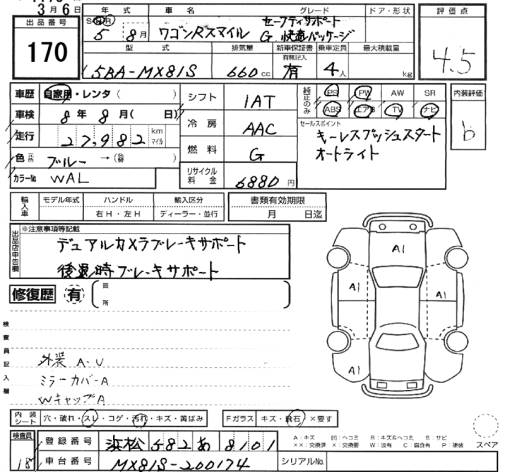 3月6日
出品番号 170
年式 車名 グレード ドア・形状 評価点
5年 8月 ワゴンRスマイル セーフティサポート
G 快適パッケージ
4.5
型式 排気量 新車保証書 乗車定員 最大積載量
5BA-MX81S 660cc 有 4人 kg
車歴 自家用・レンタ( )
シフト 1AT
PS PW AW SR
ABS エアB TV ナビ
内装評価 b
車検 8年8月( 日)
冷房 AAC
セールスポイント
キーレスプッシュスタート
オートライト
走行 27,982 km マイル
燃料 G
色 ブルー→( )
カラーNo. WAL
リサイクル料金 6880円
輸入車 モデル年式 ハンドル 輸入区分 書類有効期限
右H・左H ディーラー・並行 月 日迄
出品店申告欄
※注意事項等記載
デュアルカメラブレーキサポート
後退時ブレーキサポート
修復歴 有 箇所
検査員記入欄
外装 A-U
ミラーカバーA
WキャップA
A1
A1 A1
A1
内装シート 穴・破れ・スレ・コゲ・汚れ・キズ・黄ばみ Fガラス キズ・飛石 ×要す
スペア
検査員 18
登録番号 浜松 582 あ 8101
車台番号 MX81S-200174 シリアルNo.